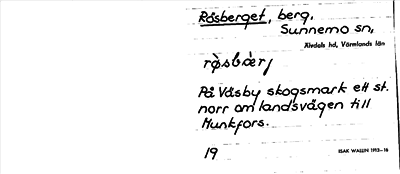 Råsberget, berg,
Sunnemo sn,
Älvdals hd, Värmlands län
På Våsby skogsmark ett st.
norr om landsvägen till
Munkfors.
19
ISAK WALLIN 1913–16